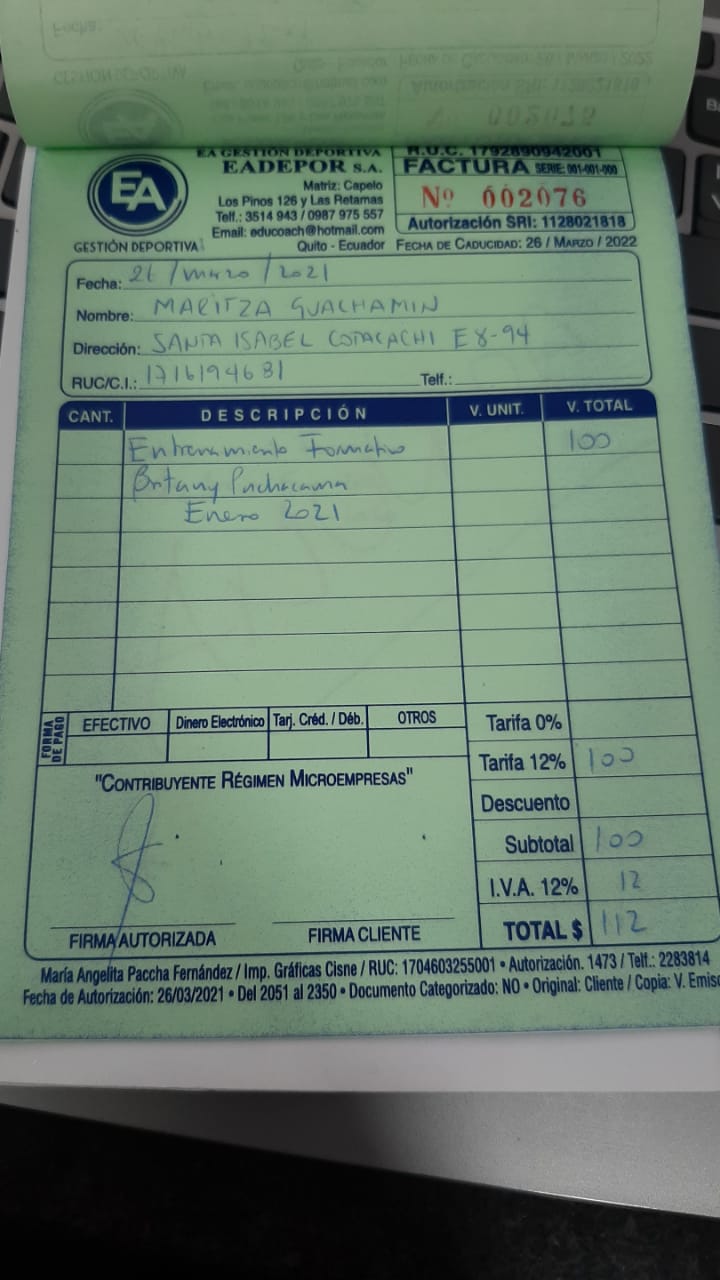 EA GESTIÓN DEPORTIVA
EADEPOR S.A.
Matriz: Capelo
Los Pinos 126 y Las Retamas
Telf.: 3514 943 / 0987 975 557
Email: educoach@hotmail.com
Quito - Ecuador
EA
GESTIÓN DEPORTIVA
R.U.C. 1792890942001
FACTURA SERIE: 001-001-000
Nº 002076
Autorización SRI: 1128021818
FECHA DE CADUCIDAD: 26 / MARZO / 2022
Fecha: 26 / marzo / 2021
Nombre: MARITZA GUACHAMIN
Dirección: SANTA ISABEL COTACACHI E8-94
RUC/C.I.: 1716194681 Telf.:
CANT. DESCRIPCIÓN V. UNIT. V. TOTAL
Entrenamiento Formativo 100
Britany Puchacama
Enero 2021
FORMA DE PAGO
EFECTIVO Dinero Electrónico Tarj. Créd. / Déb. OTROS
Tarifa 0%
Tarifa 12% 100
Descuento
Subtotal 100
I.V.A. 12% 12
TOTAL $ 112
"CONTRIBUYENTE RÉGIMEN MICROEMPRESAS"
FIRMA AUTORIZADA FIRMA CLIENTE
María Angelita Paccha Fernández / Imp. Gráficas Cisne / RUC: 1704603255001 • Autorización. 1473 / Telf.: 2283814
Fecha de Autorización: 26/03/2021 • Del 2051 al 2350 • Documento Categorizado: NO • Original: Cliente / Copia: V. Emiso